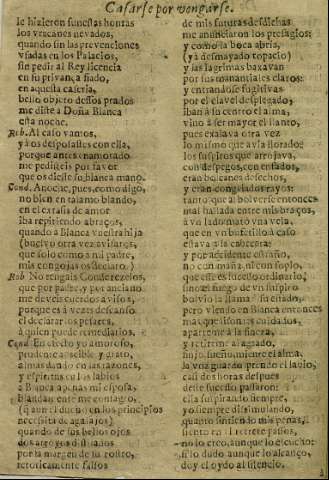 Casarse por vengarse.
le hizieron funestas honras
los vracanes nevados,
quando sin las prevenciones
vsadas en los Palacios,
sin pedir al Rey licencia
en su privança fiado,
en aquesta caseria,
bello objeto destos prados
me diste a Doña Blanca
esta noche.
Rob. Al caso vamos,
ya os desposastes con ella,
porque antes enamorado
me pedisteis por favor
que os diesse su blanca mano.
Cond. Anoche, pues, como digo,
no bien en talamo blando,
en el extasis de amor
iba repitiendo abraços,
quando a Blanca vuestra hija
(buelvo otra vez a avisaros,
que solo como a mi padre,
mis congojas os declaro.)
Rob. No tengais Conde rezelos,
que por padre, y por anciano
me deveis cuerdos avisos,
porque es à vezes descanso
el declarar los pesares,
à quien puede remediarlos.
Cond. En efecto yo amoroso,
prudente, apacible y grato,
almas dando en las razones,
y espiritus en los labios
a Blanca apenas mi esposa,
blandamente me contagio,
(q̃ aun el dueño en los principios
necessita de agasajos)
quando de sus bellos ojos
dos arroyos disfilados
por la margen de su rostro,
retoricamente falsos
de mis futuras desdichas
me anunciaron los presagios:
y como la boca abria,
(ya desmayado topacio)
y las lagrimas baxavan
por sus manantiales claros:
y entrandose fugitivas
por el clavel desplegado,
iban à su centro el alma,
vino à ser mayor el llanto,
pues exalava otra vez
lo mismo que avia llorado:
los suspiros que arrojava,
con despegos, con enfados,
eran bolcanes deshechos,
y eran congelados rayos:
tanto que al bolverse entonces
mal hallada entre mis braços,
à vn lado mato vna vela,
que en vn bufetillo à caso
estava a su cabecera:
y por accidente estraño,
no con maña, ni con soplo,
que esse es sucesso ordinario;
sino es fuego de vn suspiro
bolvio la llama a su estado,
pero viendo en Blanca entonces
mas que distintos cuidados,
apartème à la fuerza,
y retirème al agrado,
finjo sueño, miente el alma,
la voz guardo, prendo el labio,
casi dos horas despues
deste sucesso passaron:
ella suspirando siempre,
yo siempre dissimulando,
quanto sintiendo mis penas,
siento en el retrete passos,
no lo creo, aunque lo escucho:
si lo dudo aunque lo alcanço,
doy el oydo al silencio.